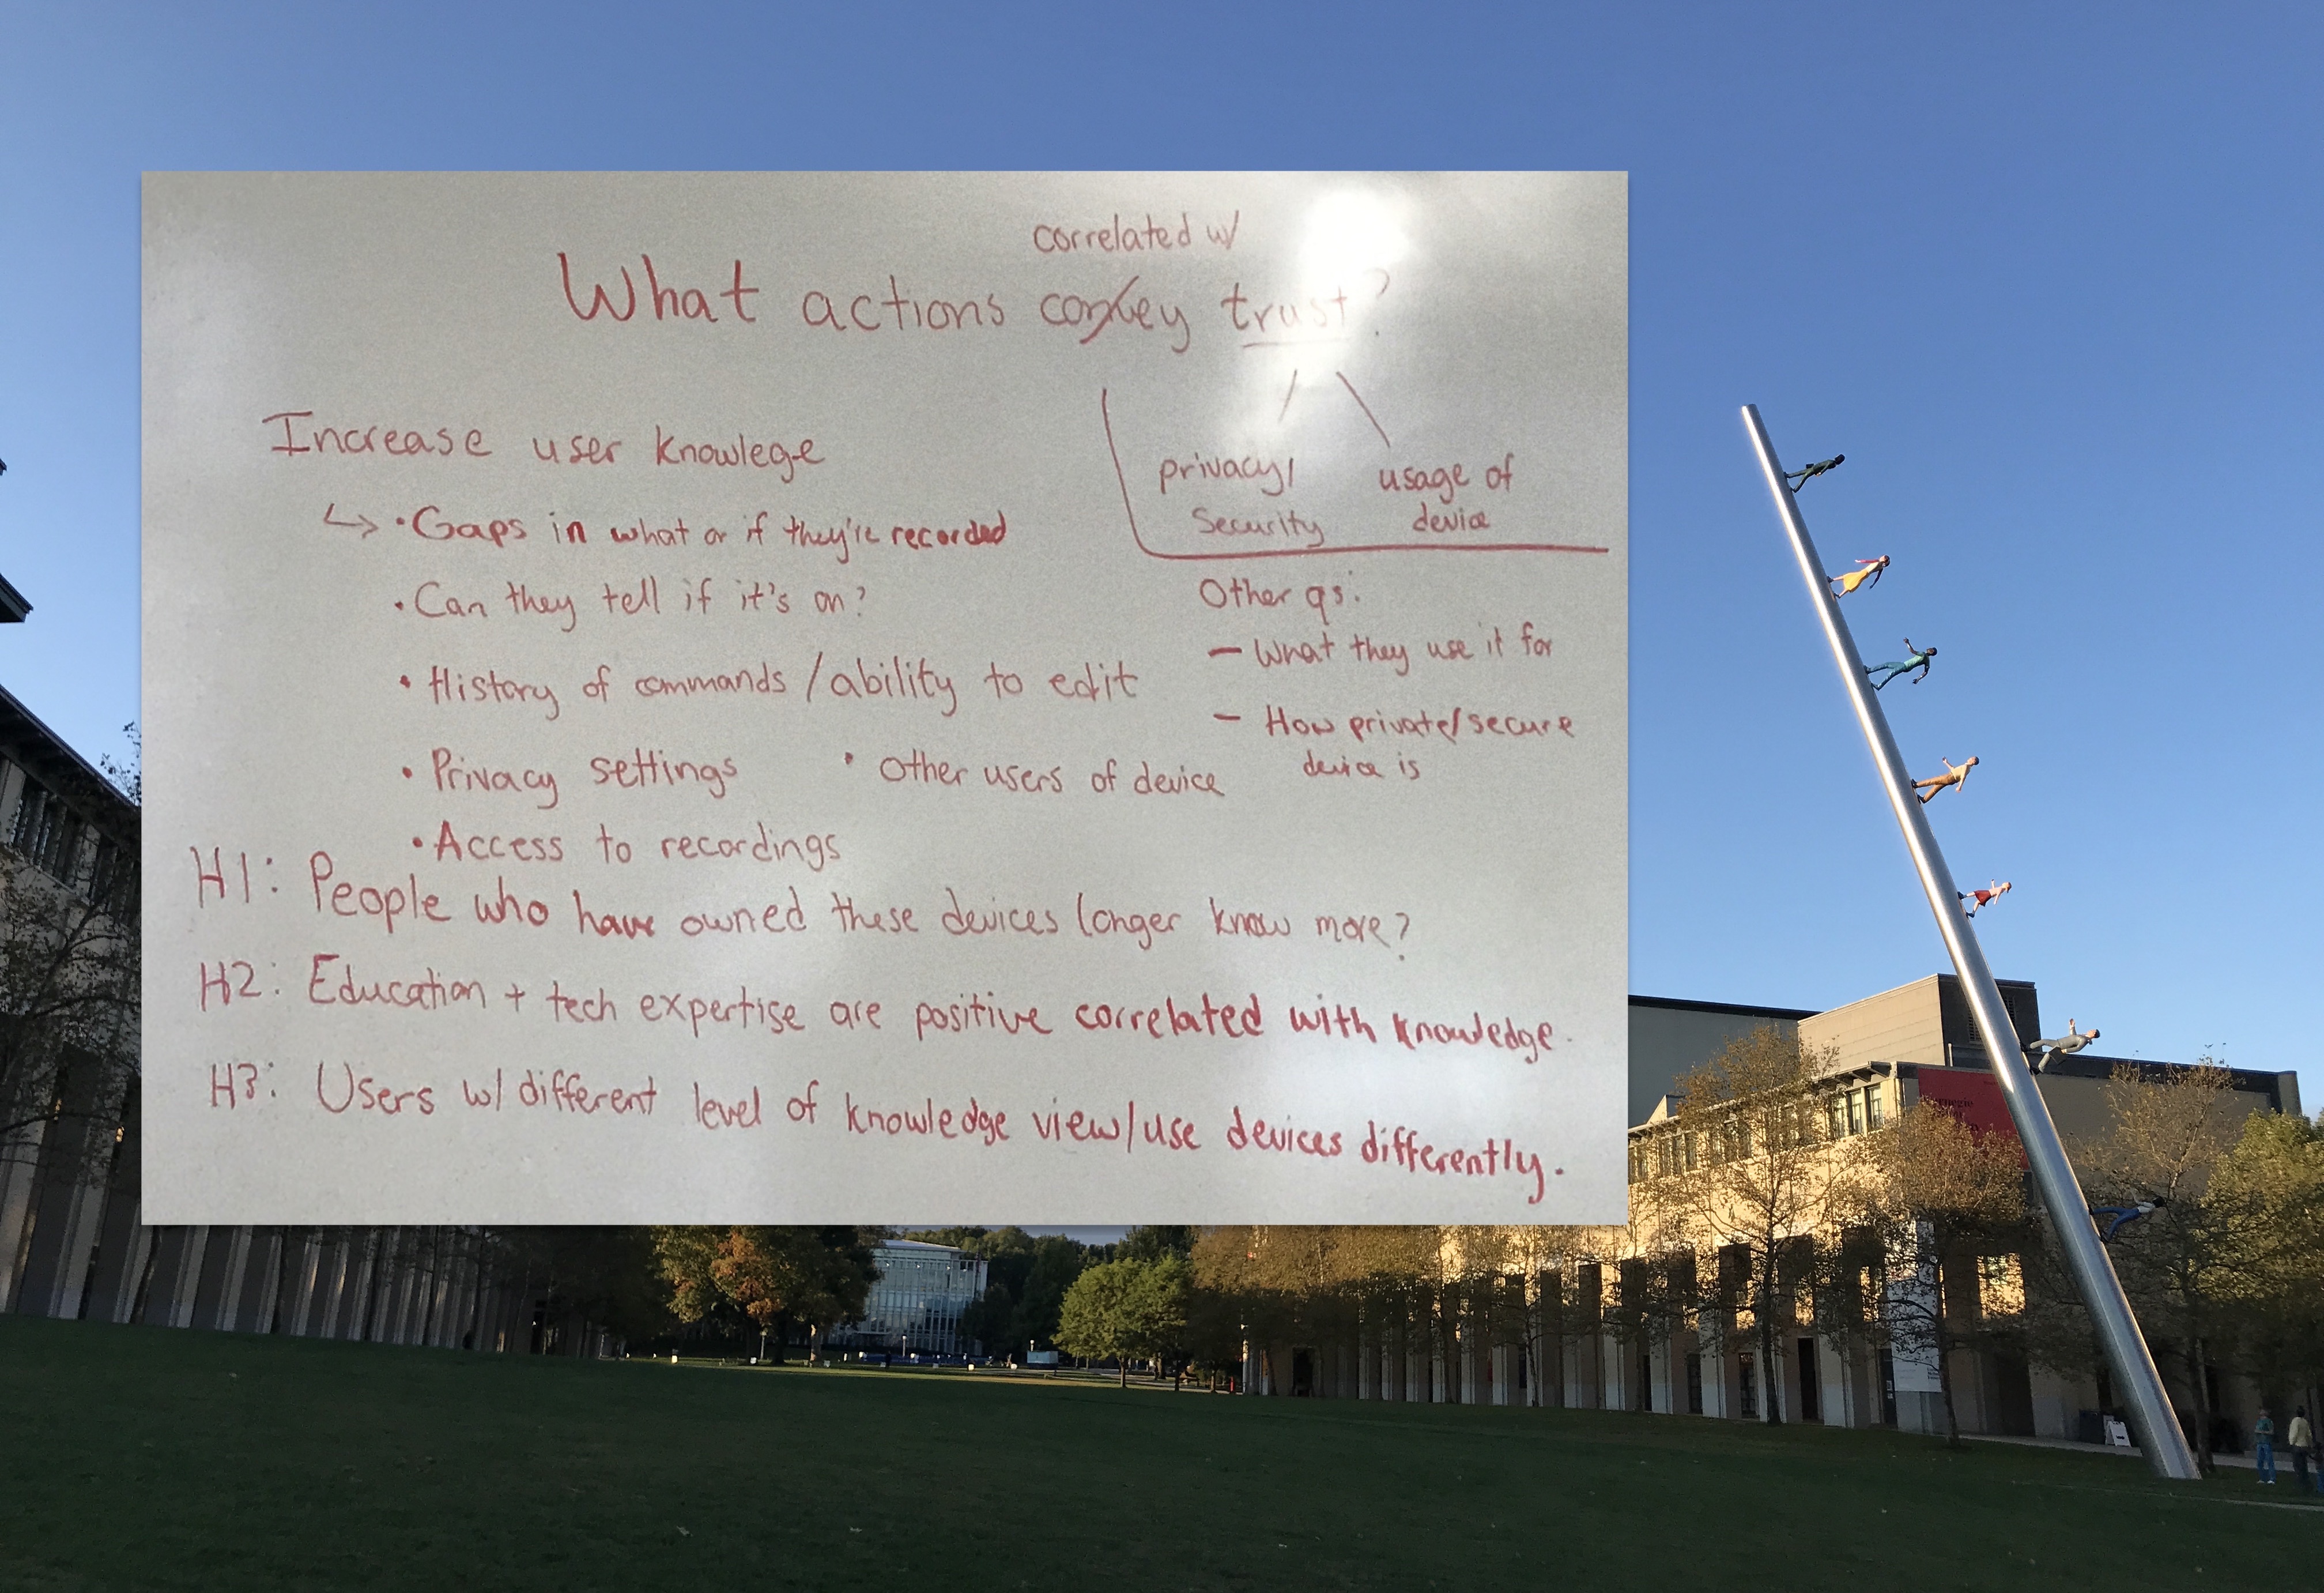 correlated w/
What actions convey trust?
privacy/
Security
usage of
device
Increase user knowlege
↳ • Gaps in what or if they're recorded
• Can they tell if it's on?
• History of commands / ability to edit
• Privacy settings • Other users of device
• Access to recordings
Other qs:
- What they use it for
- How private/secure
device is
H1: People who have owned these devices longer know more?
H2: Education + tech expertise are positive correlated with knowledge.
H3: Users w/ different level of knowledge view/use devices differently.